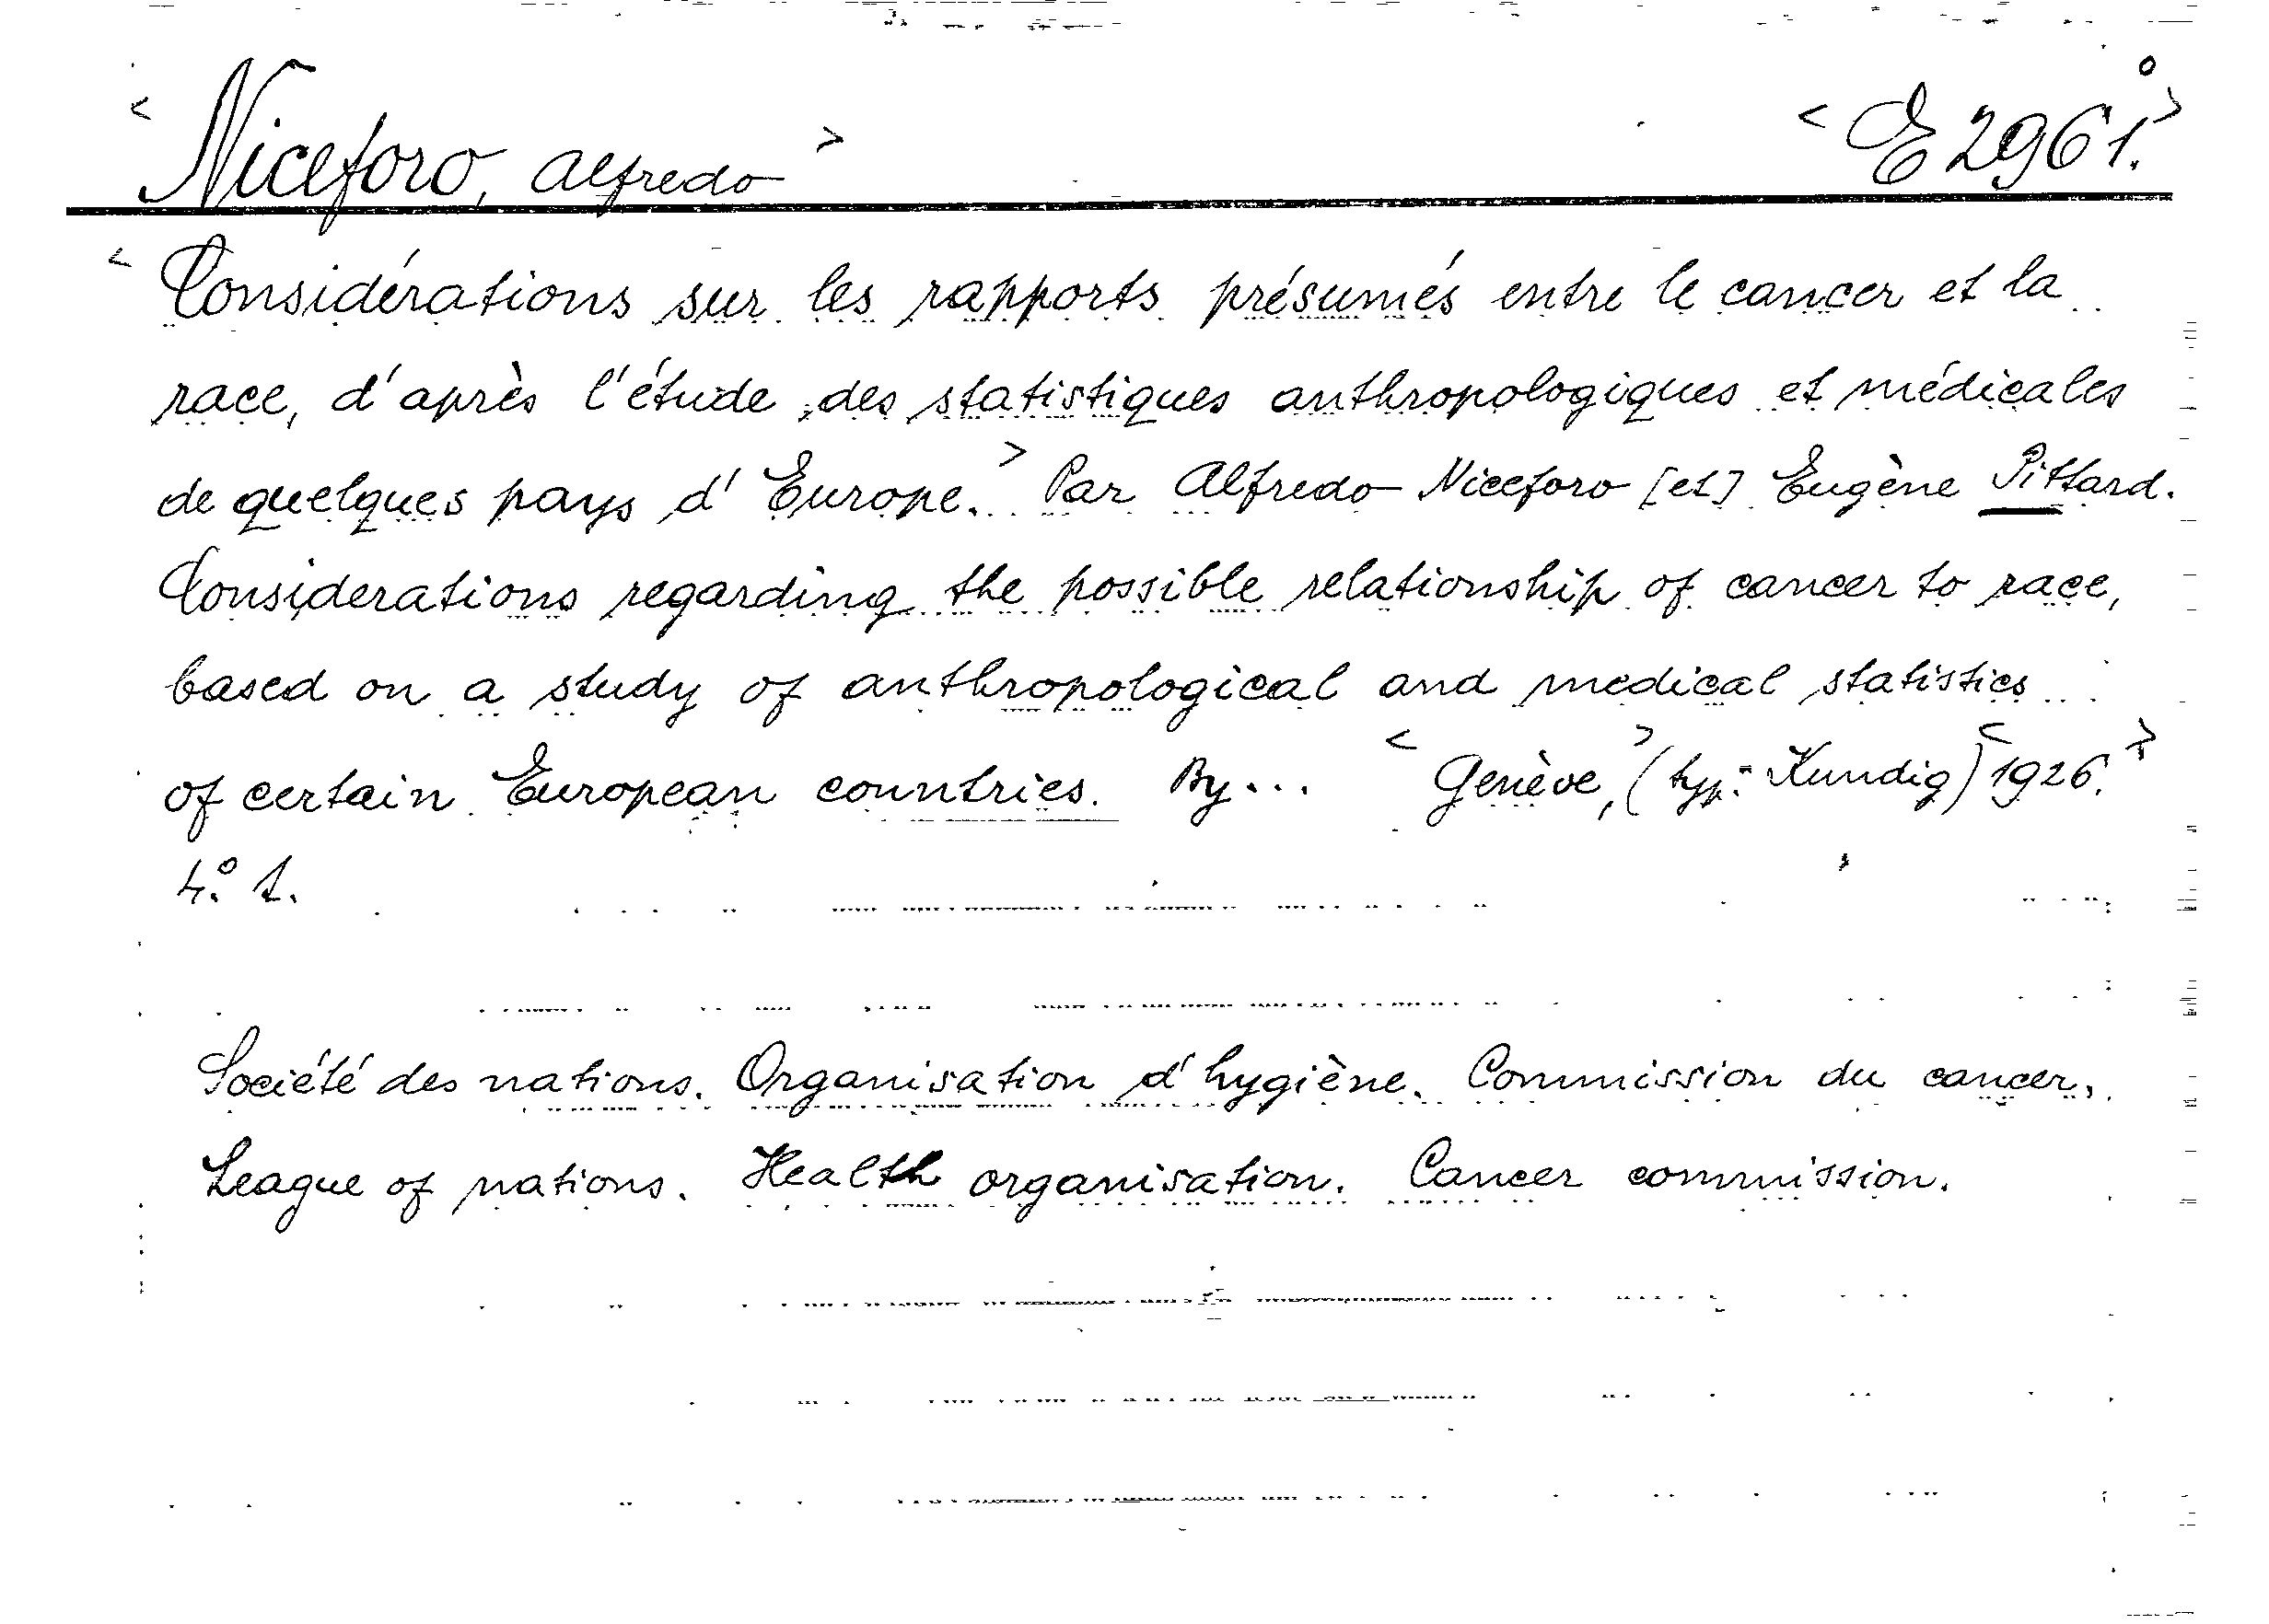 < Niceforo, Alfredo > < E 2961.° >
< Considérations sur les rapports présumés entre le cancer et la
race, d'après l'étude des statistiques anthropologiques et médicales
de quelques pays d'Europe. > Par Alfredo Niceforo [et] Eugène Pittard.
Considerations regarding the possible relationship of cancer to race,
based on a study of anthropological and medical statistics
of certain European countries. By... < Genève, > (typ: Kundig) < 1926. >
4.° 1.
Société des nations. Organisation d'hygiène. Commission du cancer.
League of nations. Health organisation. Cancer commission.